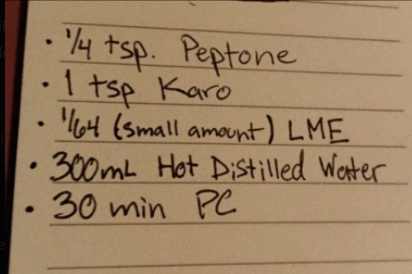 · 1/4 tsp. Peptone
· 1 tsp Karo
· 1/64 (small amount) LME
· 300mL Hot Distilled Water
· 30 min PC